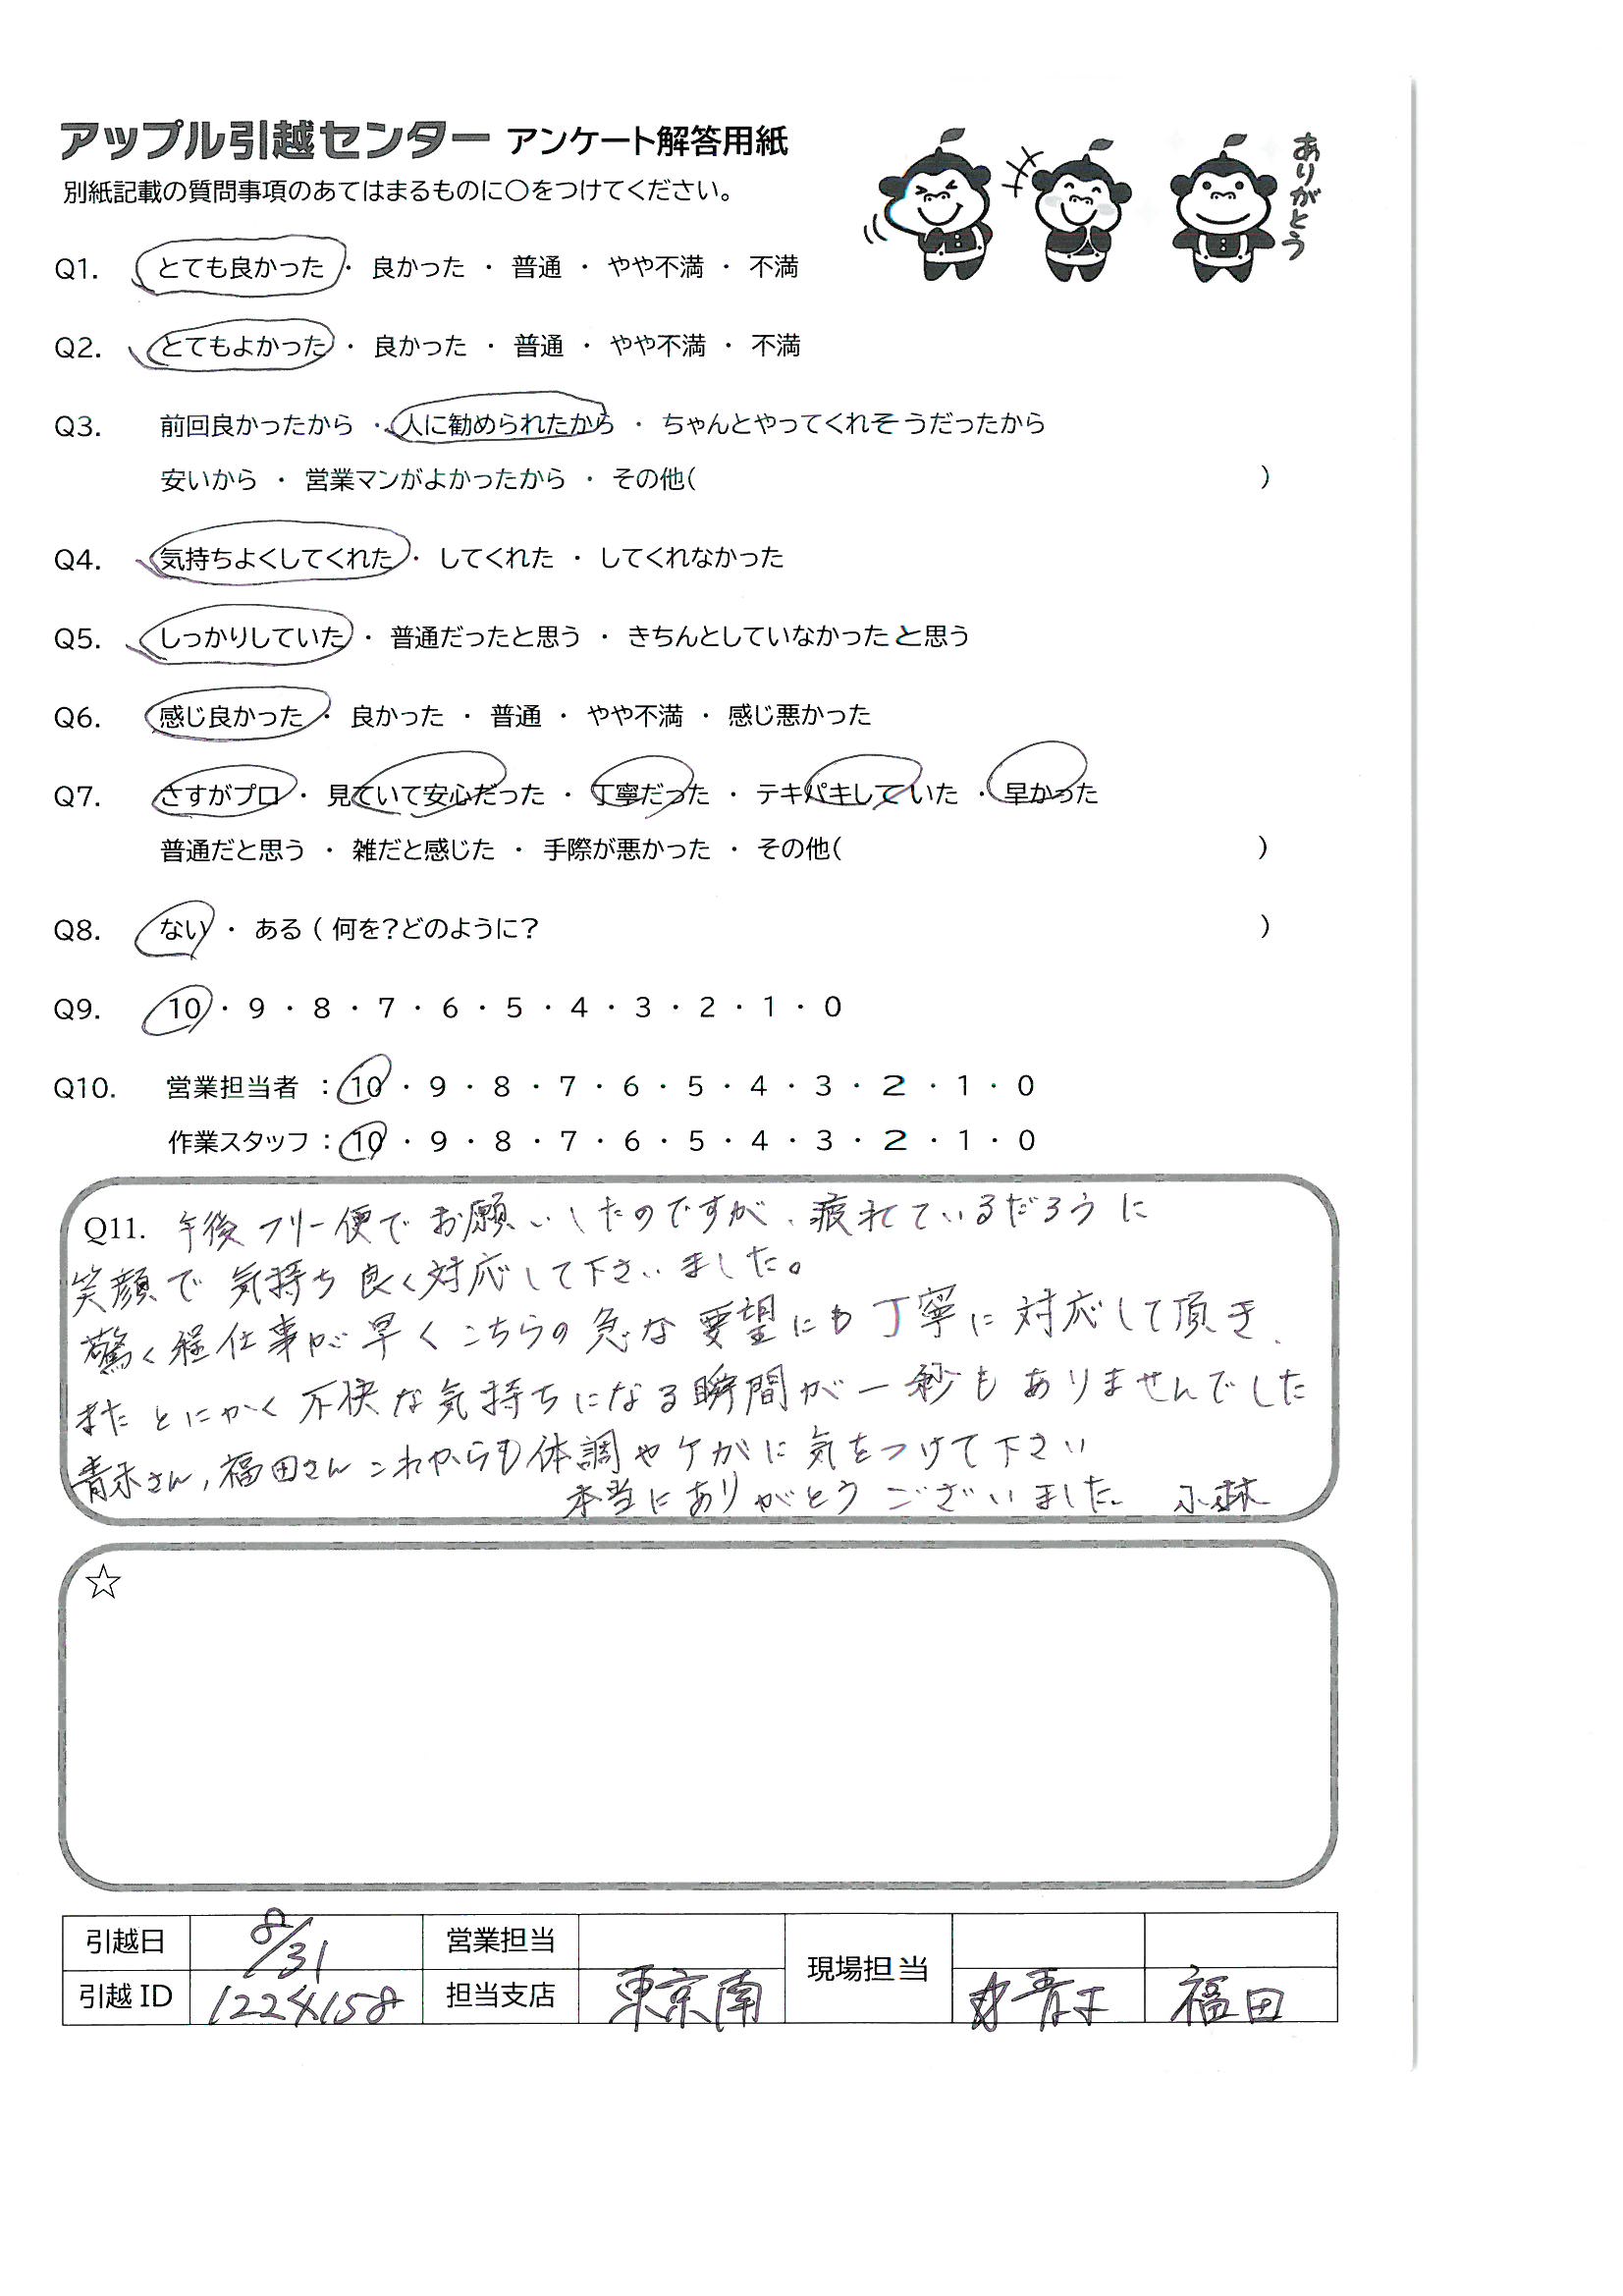 アップル引越センター アンケート解答用紙
ありがとう
別紙記載の質問事項のあてはまるものに〇をつけてください。
Q1. とても良かった ・ 良かった ・ 普通 ・ やや不満 ・ 不満
Q2. とてもよかった ・ 良かった ・ 普通 ・ やや不満 ・ 不満
Q3. 前回良かったから ・ 人に勧められたから ・ ちゃんとやってくれそうだったから
安いから ・ 営業マンがよかったから ・ その他( )
Q4. 気持ちよくしてくれた ・ してくれた ・ してくれなかった
Q5. しっかりしていた ・ 普通だったと思う ・ きちんとしていなかったと思う
Q6. 感じ良かった ・ 良かった ・ 普通 ・ やや不満 ・ 感じ悪かった
Q7. さすがプロ ・ 見ていて安心だった ・ 丁寧だった ・ テキパキしていた ・ 早かった
普通だと思う ・ 雑だと感じた ・ 手際が悪かった ・ その他( )
Q8. ない ・ ある ( 何を?どのように? )
Q9. 10 ・ 9 ・ 8 ・ 7 ・ 6 ・ 5 ・ 4 ・ 3 ・ 2 ・ 1 ・ 0
Q10. 営業担当者 : 10 ・ 9 ・ 8 ・ 7 ・ 6 ・ 5 ・ 4 ・ 3 ・ 2 ・ 1 ・ 0
作業スタッフ : 10 ・ 9 ・ 8 ・ 7 ・ 6 ・ 5 ・ 4 ・ 3 ・ 2 ・ 1 ・ 0
Q11. 午後フリー便でお願いしたのですが、疲れているだろうに
笑顔で気持ち良く対応して下さいました。
驚く程仕事が早くこちらの急な要望にも丁寧に対応して頂き、
またとにかく不快な気持ちになる瞬間が一秒もありませんでした
青木さん,福田さんこれからも体調やケガに気をつけて下さい
本当にありがとうございました。 小林
☆
引越日 8/31 営業担当 現場担当
引越ID 1224158 担当支店 東京南 福田